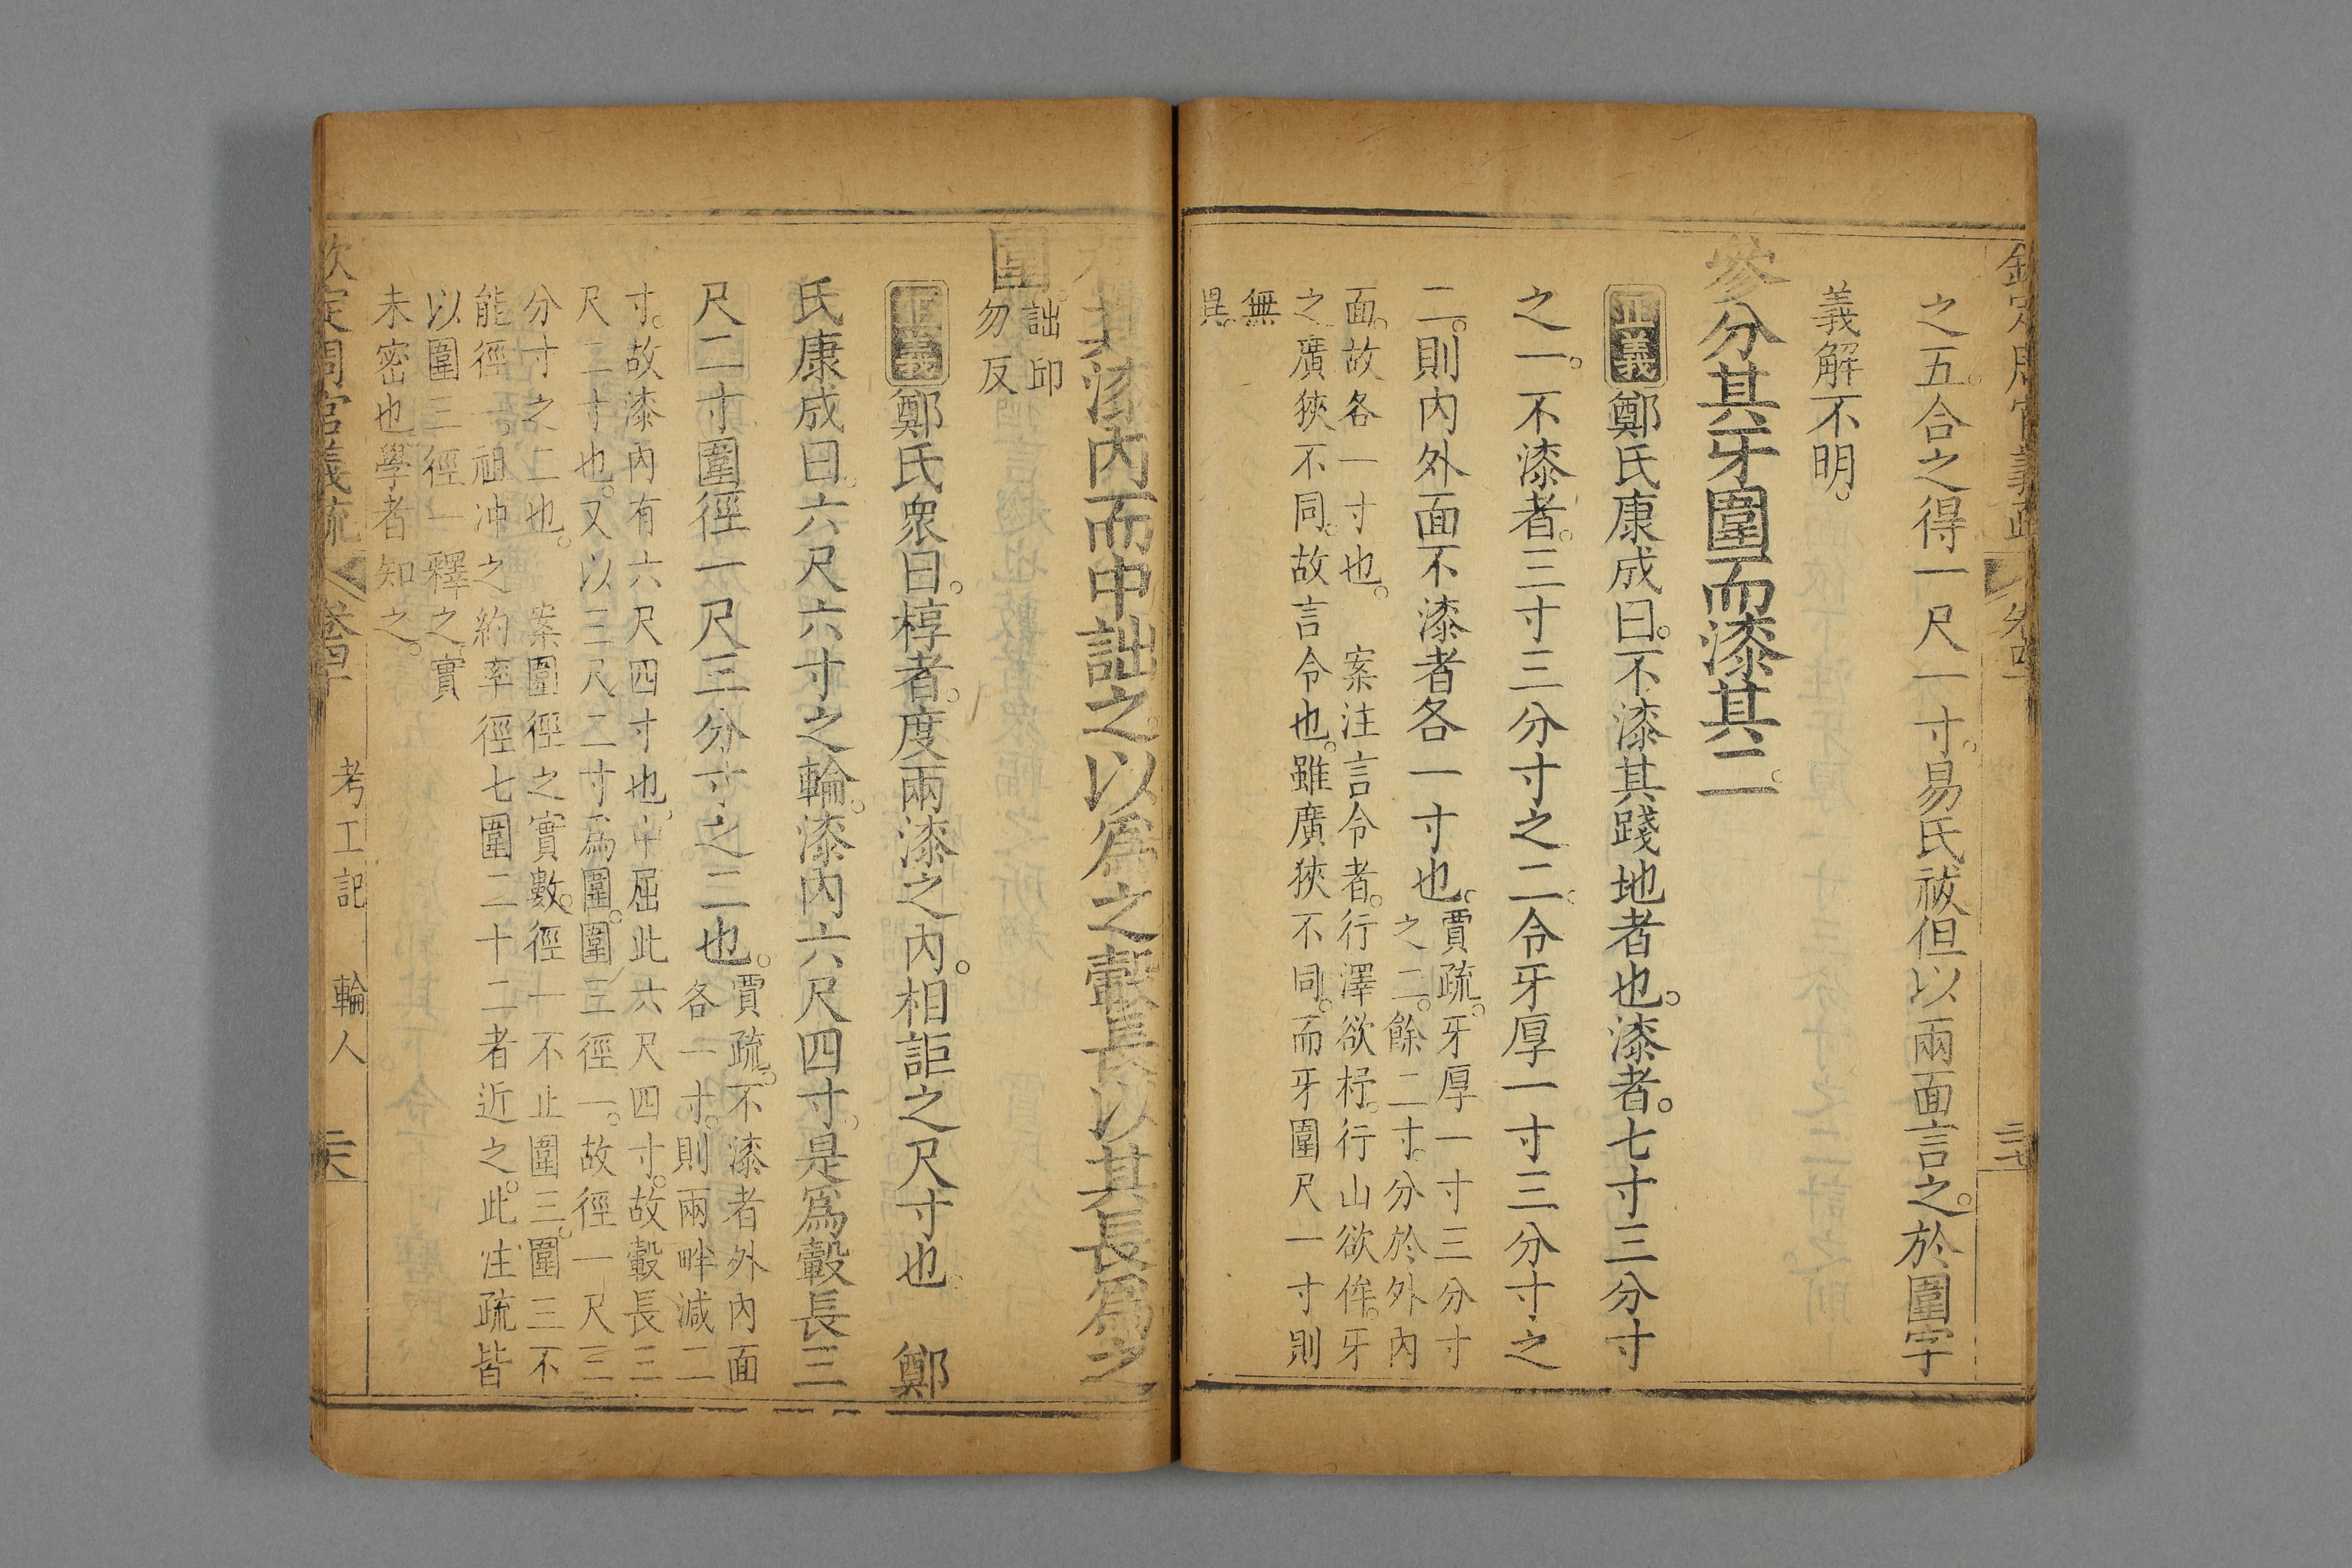 之五。合之得一尺一寸。易氏祓但以兩面言之。於圍字
義解不明。
參分其牙圍而漆其二。
正義鄭氏康成曰。不漆其踐地者也。漆者。七寸三分寸
之一。不漆者。三寸三分寸之二。令牙厚一寸三分寸之
二。則內外面不漆者各一寸也。賈疏。牙厚一寸三分寸
之二。餘二寸。分於外內
面。故各一寸也。 案注言令者。行澤欲杼。行山欲侔。牙
之廣狹不同。故言令也。雖廣狹不同。而牙圍尺一寸則
無
異。
其漆內而中詘之。以爲之轂長。以其長爲之
圍。詘邱
勿反
正義鄭氏衆曰。椁者。度兩漆之內。相距之尺寸也。 鄭
氏康成曰。六尺六寸之輪。漆內六尺四寸。是爲轂長三
尺二寸。圍徑一尺三分寸之二也。賈疏。不漆者外內面
各一寸。則兩畔減二
寸。故漆內有六尺四寸也。中屈此六尺四寸。故轂長三
尺二寸也。又以三尺二寸爲圍。圍三徑一。故徑一尺三
分寸之二也。 案圍徑之實數。徑一不止圍三。圍三不
能徑一。祖冲之約率徑七圍二十二者近之。此注疏皆
以圍三徑一釋之實
未密也學者知之。
欽定周官義疏 卷四十 考工記 輪人